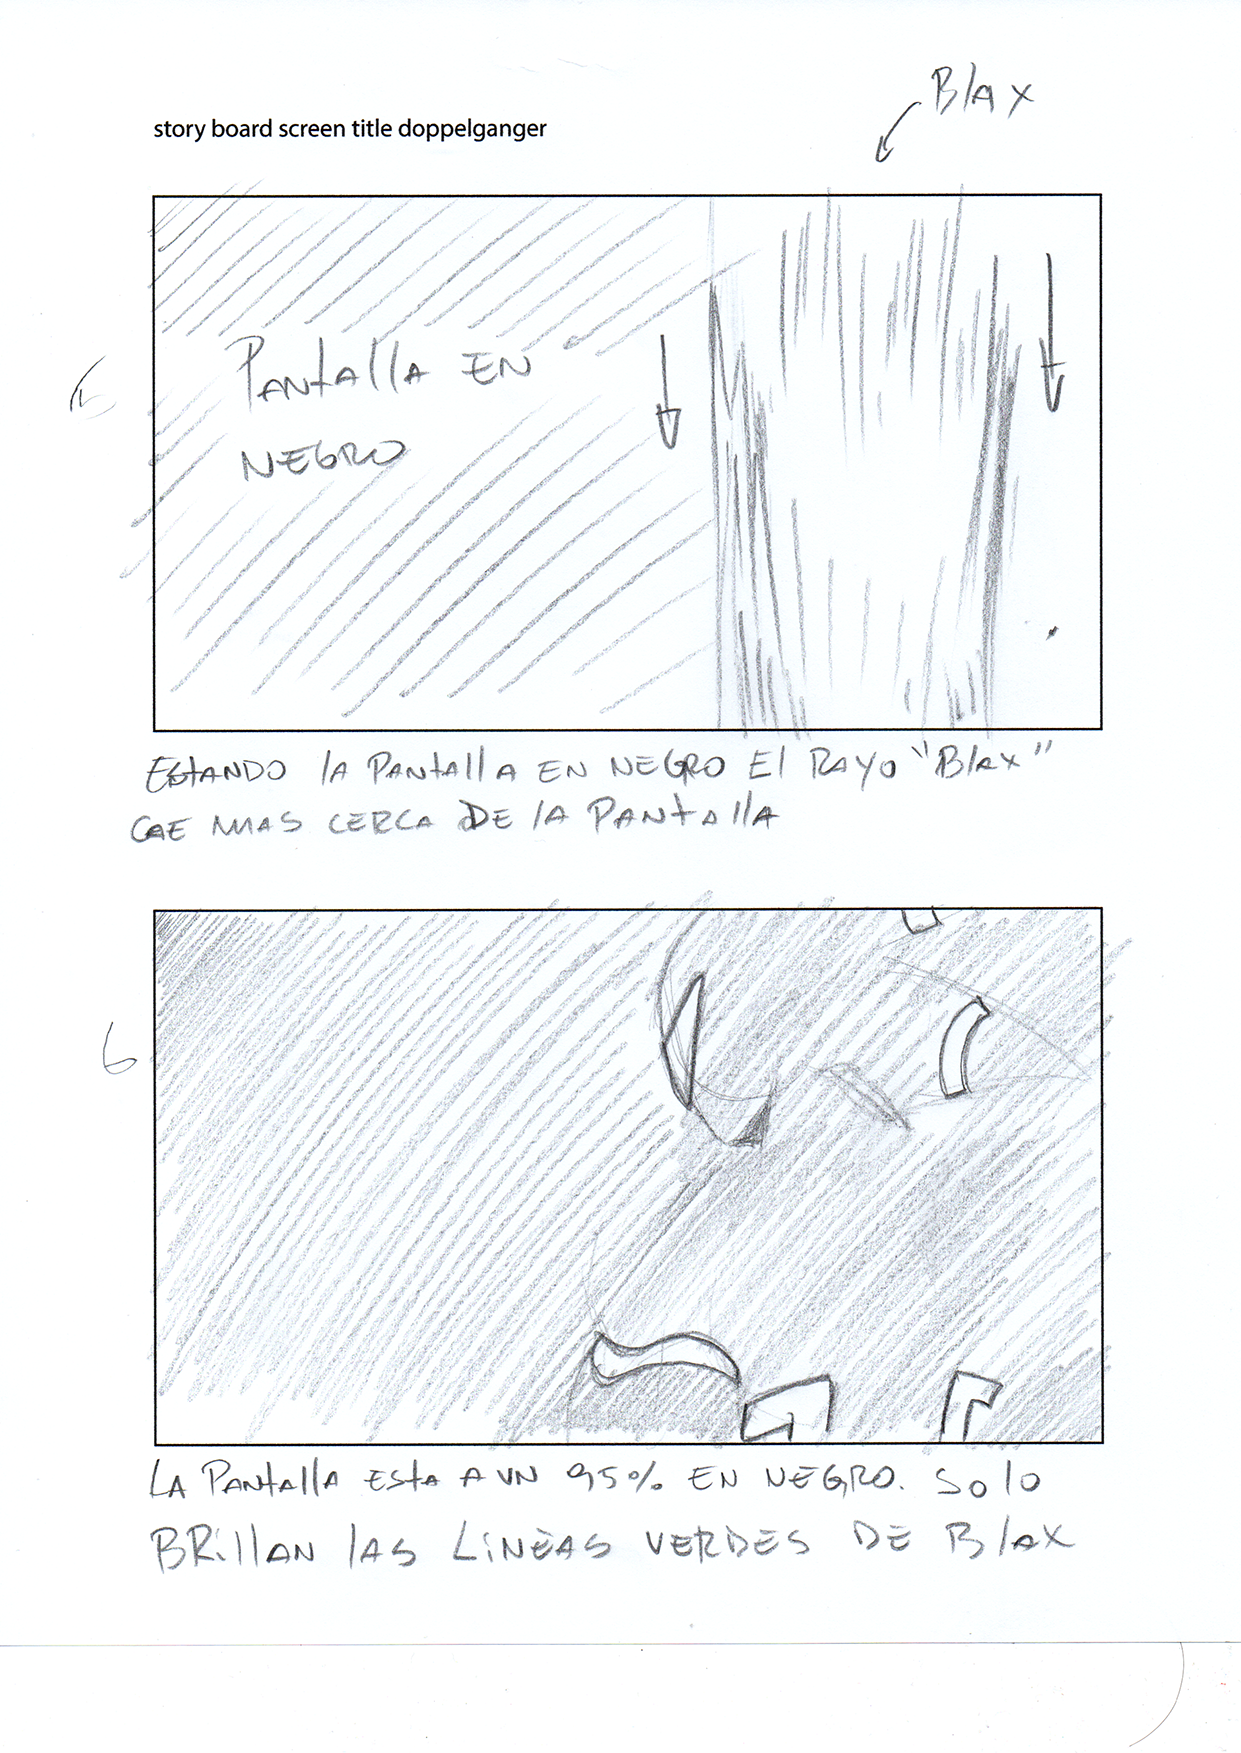 Blax
story board screen title doppelganger
5
Pantalla en
negro
Estando la pantalla en negro el rayo "Blax"
cae mas cerca de la pantalla
6
La pantalla esta a un 95% en negro. Solo
brillan las lineas verdes de Blax